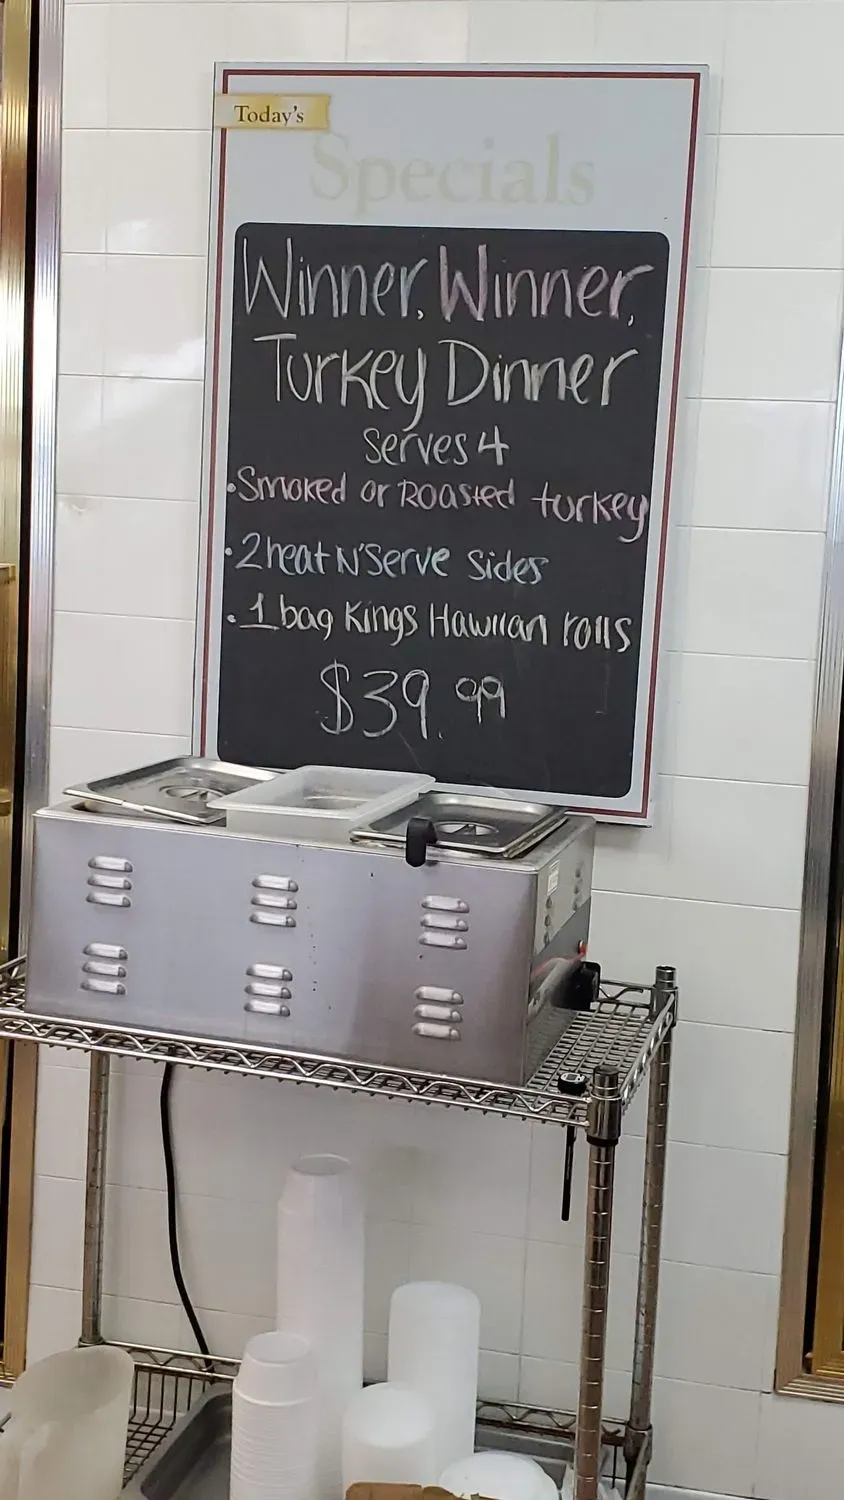 Today's
Specials
Winner, Winner,
Turkey Dinner
Serves 4
• Smoked or Roasted turkey
• 2 heat N'Serve sides
• 1 bag Kings Hawiian rolls
$39.99